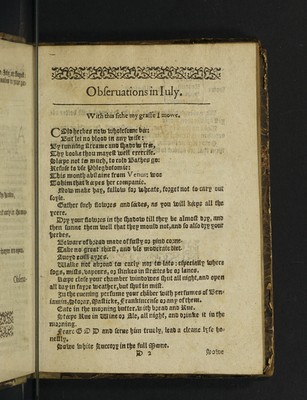 Observations in Iuly.
With this sithe my grasse I mowe.
COld herbes now wholesome be:
But let no blood in any wise:
By running streame and shadow tree,
Thy bookes thou mayest well exercise.
Sleepe not too much, to cold Bathes go:
Refuse to use Phlegbotomie:
This month abstaine from Venus woe
To him that keepes her companie.
Now make hay, fallow for wheate, forget not to carry out
soyle.
Gather such flowers and seedes, as you will keepe all the
yeere.
Dry your flowers in the shadow till they be almost dry, and
then sunne them well that they mould not, and so also dry your
herbes.
Beware of bread made of fusty
Take no great thirst, and use moderate diet
Auoyd euill ayres.
Walke not abroad to early nor to late: especially where
fogs, mists, vapours, or stinkes in streates be or lanes.
Keepe close your chamber windowes shut all night, and open
all day in fayre weather, but shut in mist.
In the euening perfume your chamber with perfumes of Ben-
iamin, Storax, Masticke, Frankincense or any of them.
Eate in the morning butter, with bread and Rue.
Steepe Rue in Wine or Ale, all night, and drinke it in the
morning.
Feare GOD and serue him truely, lead a cleane lyfe ho-
nestly.
Sowe white succory in the full Moone.
D 2
Sowe